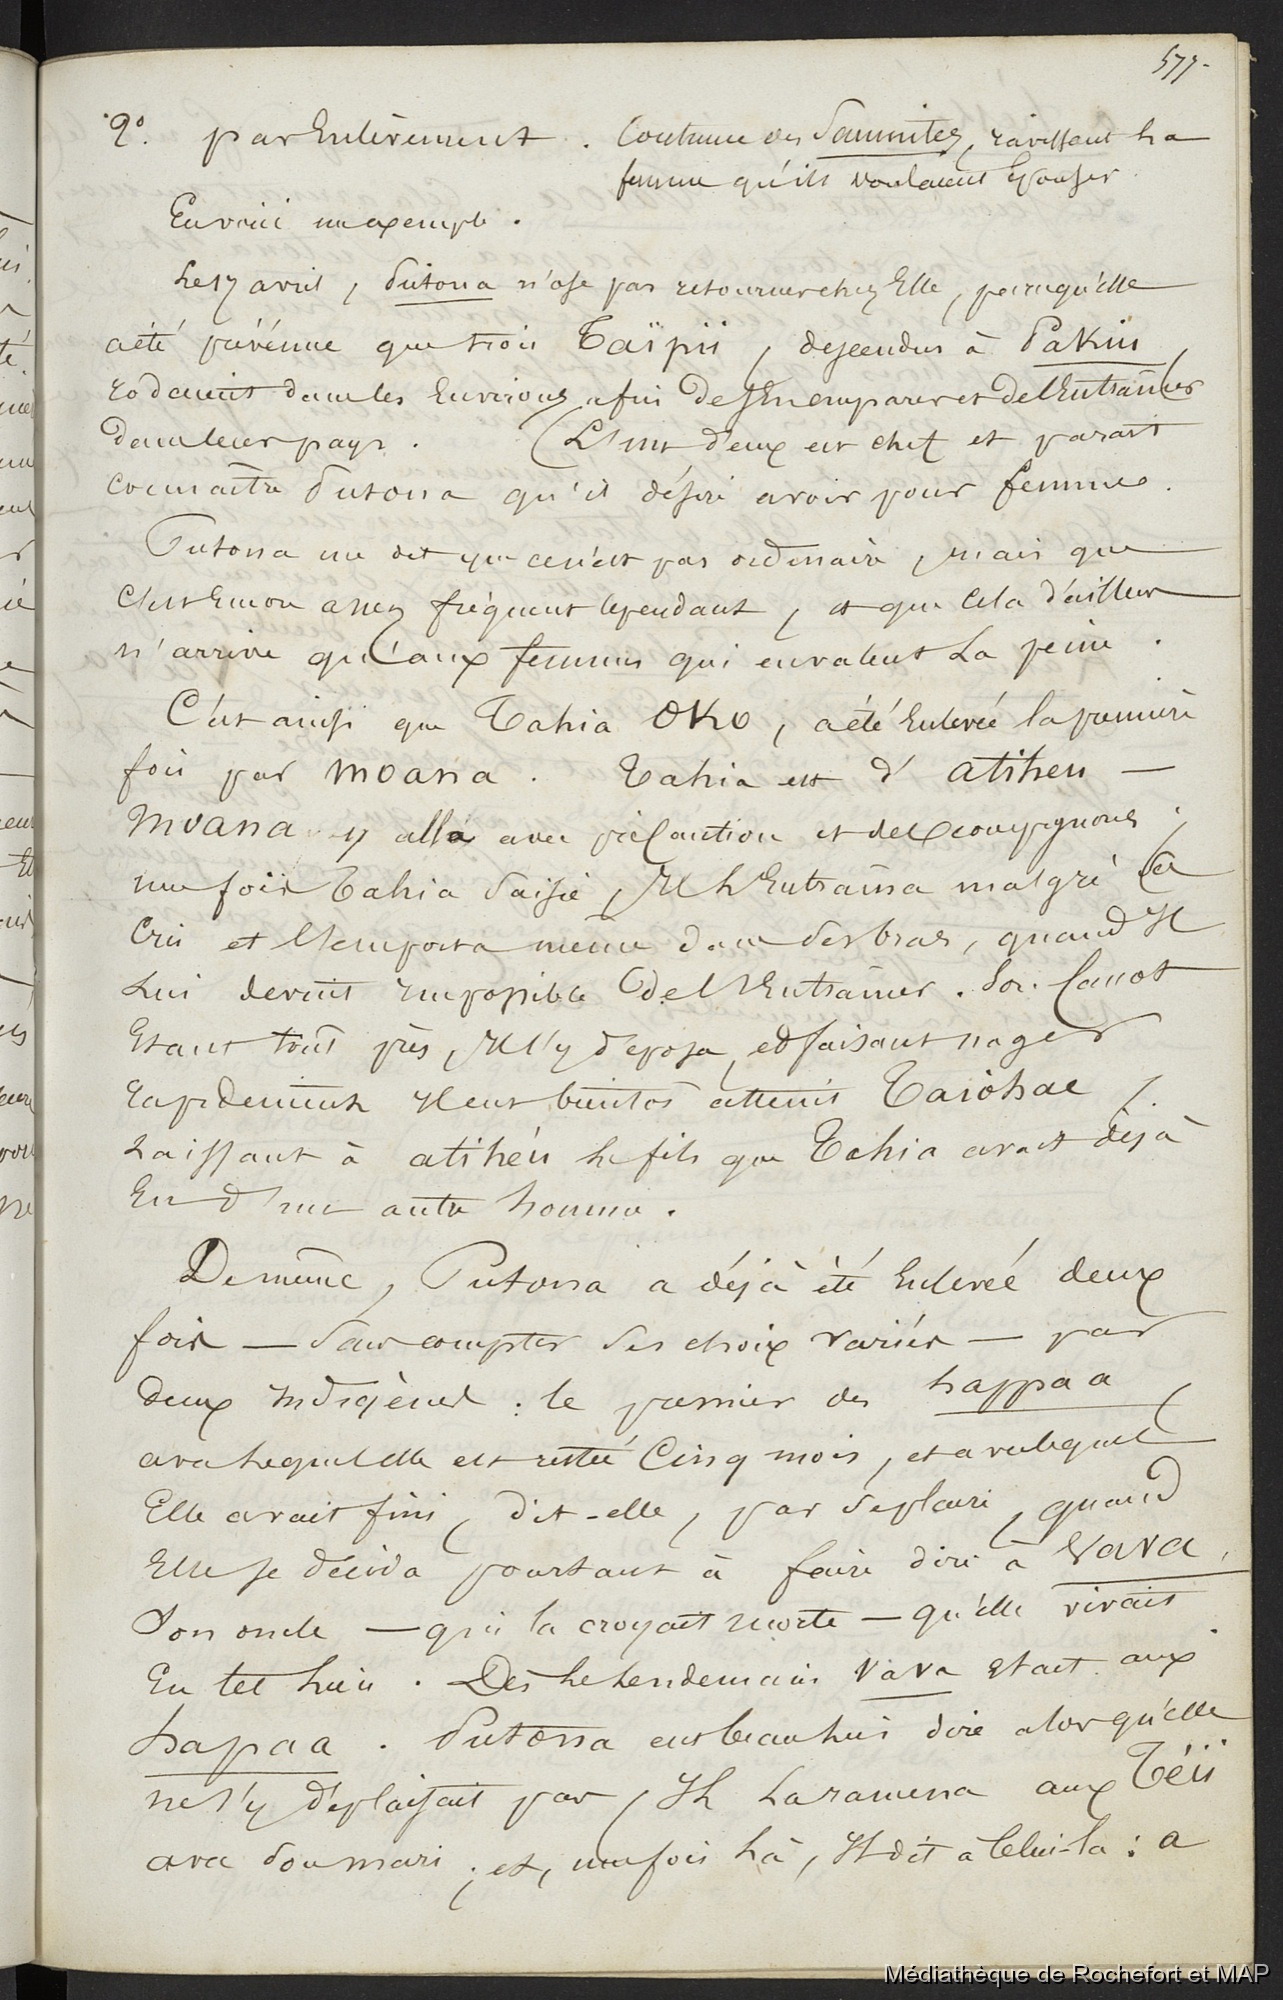 577.
2°. par Enlèvement. Coutume des Samnites, ravissent la
femme qu'ils voulaient Epouser.
En voici un exemple.
Le 17 avril, Putona n'ose pas retourner chez Elle, parcequ'elle
a été prévenue que trois Taïpii, descendus à Pakiu,
rodaient dans les Environs, afin de s'En emparer et de l'Entraîner
dans leur pays. (L'un d'eux est chef et parait
connaître Putona qu'il désire avoir pour femme.
Putona me dit que ce n'est pas ordinaire, mais que
c'est Encore assez fréquent cependant, et que cela d'ailleurs
n'arrive qu'aux femmes qui en valent la peine.
C'est ainsi que Tahia Oko, a été Enlevée la première
fois par Moana. Tahia est d'atiheu —
Moana y alla avec précaution et des compagnons;
une fois Tahia saisie, Il l'Entraîna malgré ses
Cris et l'emporta même dans ses bras, quand Il
Lui devint impossible de l'Entraîner. Son Canot
Etant tout près, Il l'y déposa, et faisant nager
rapidement Il eut bientôt atteint Taiohae,
Laissant à atihéu le fils que Tahia avait déjà
Eu d'un autre homme.
De même, Putona a déjà été Enlevée deux
fois — sans compter ses choix variés — par
deux indigènes: le premier des happaa,
avec lequel elle est restée Cinq mois, et avec lequel
Elle avait fini, dit-elle, par se plaire, quand
Elle se décida pourtant à faire dire à Vava,
Son oncle — qui la croyait morte — qu'elle vivait
En tel lieu. Dès le lendemain Vava Etait aux
hapaa. Putona eut beau lui dire alors qu'elle
ne s'y déplaisait pas, Il la ramena aux Téii
avec son mari; et, une fois là, Il dit à Celui-là: a
Médiathèque de Rochefort et MAP